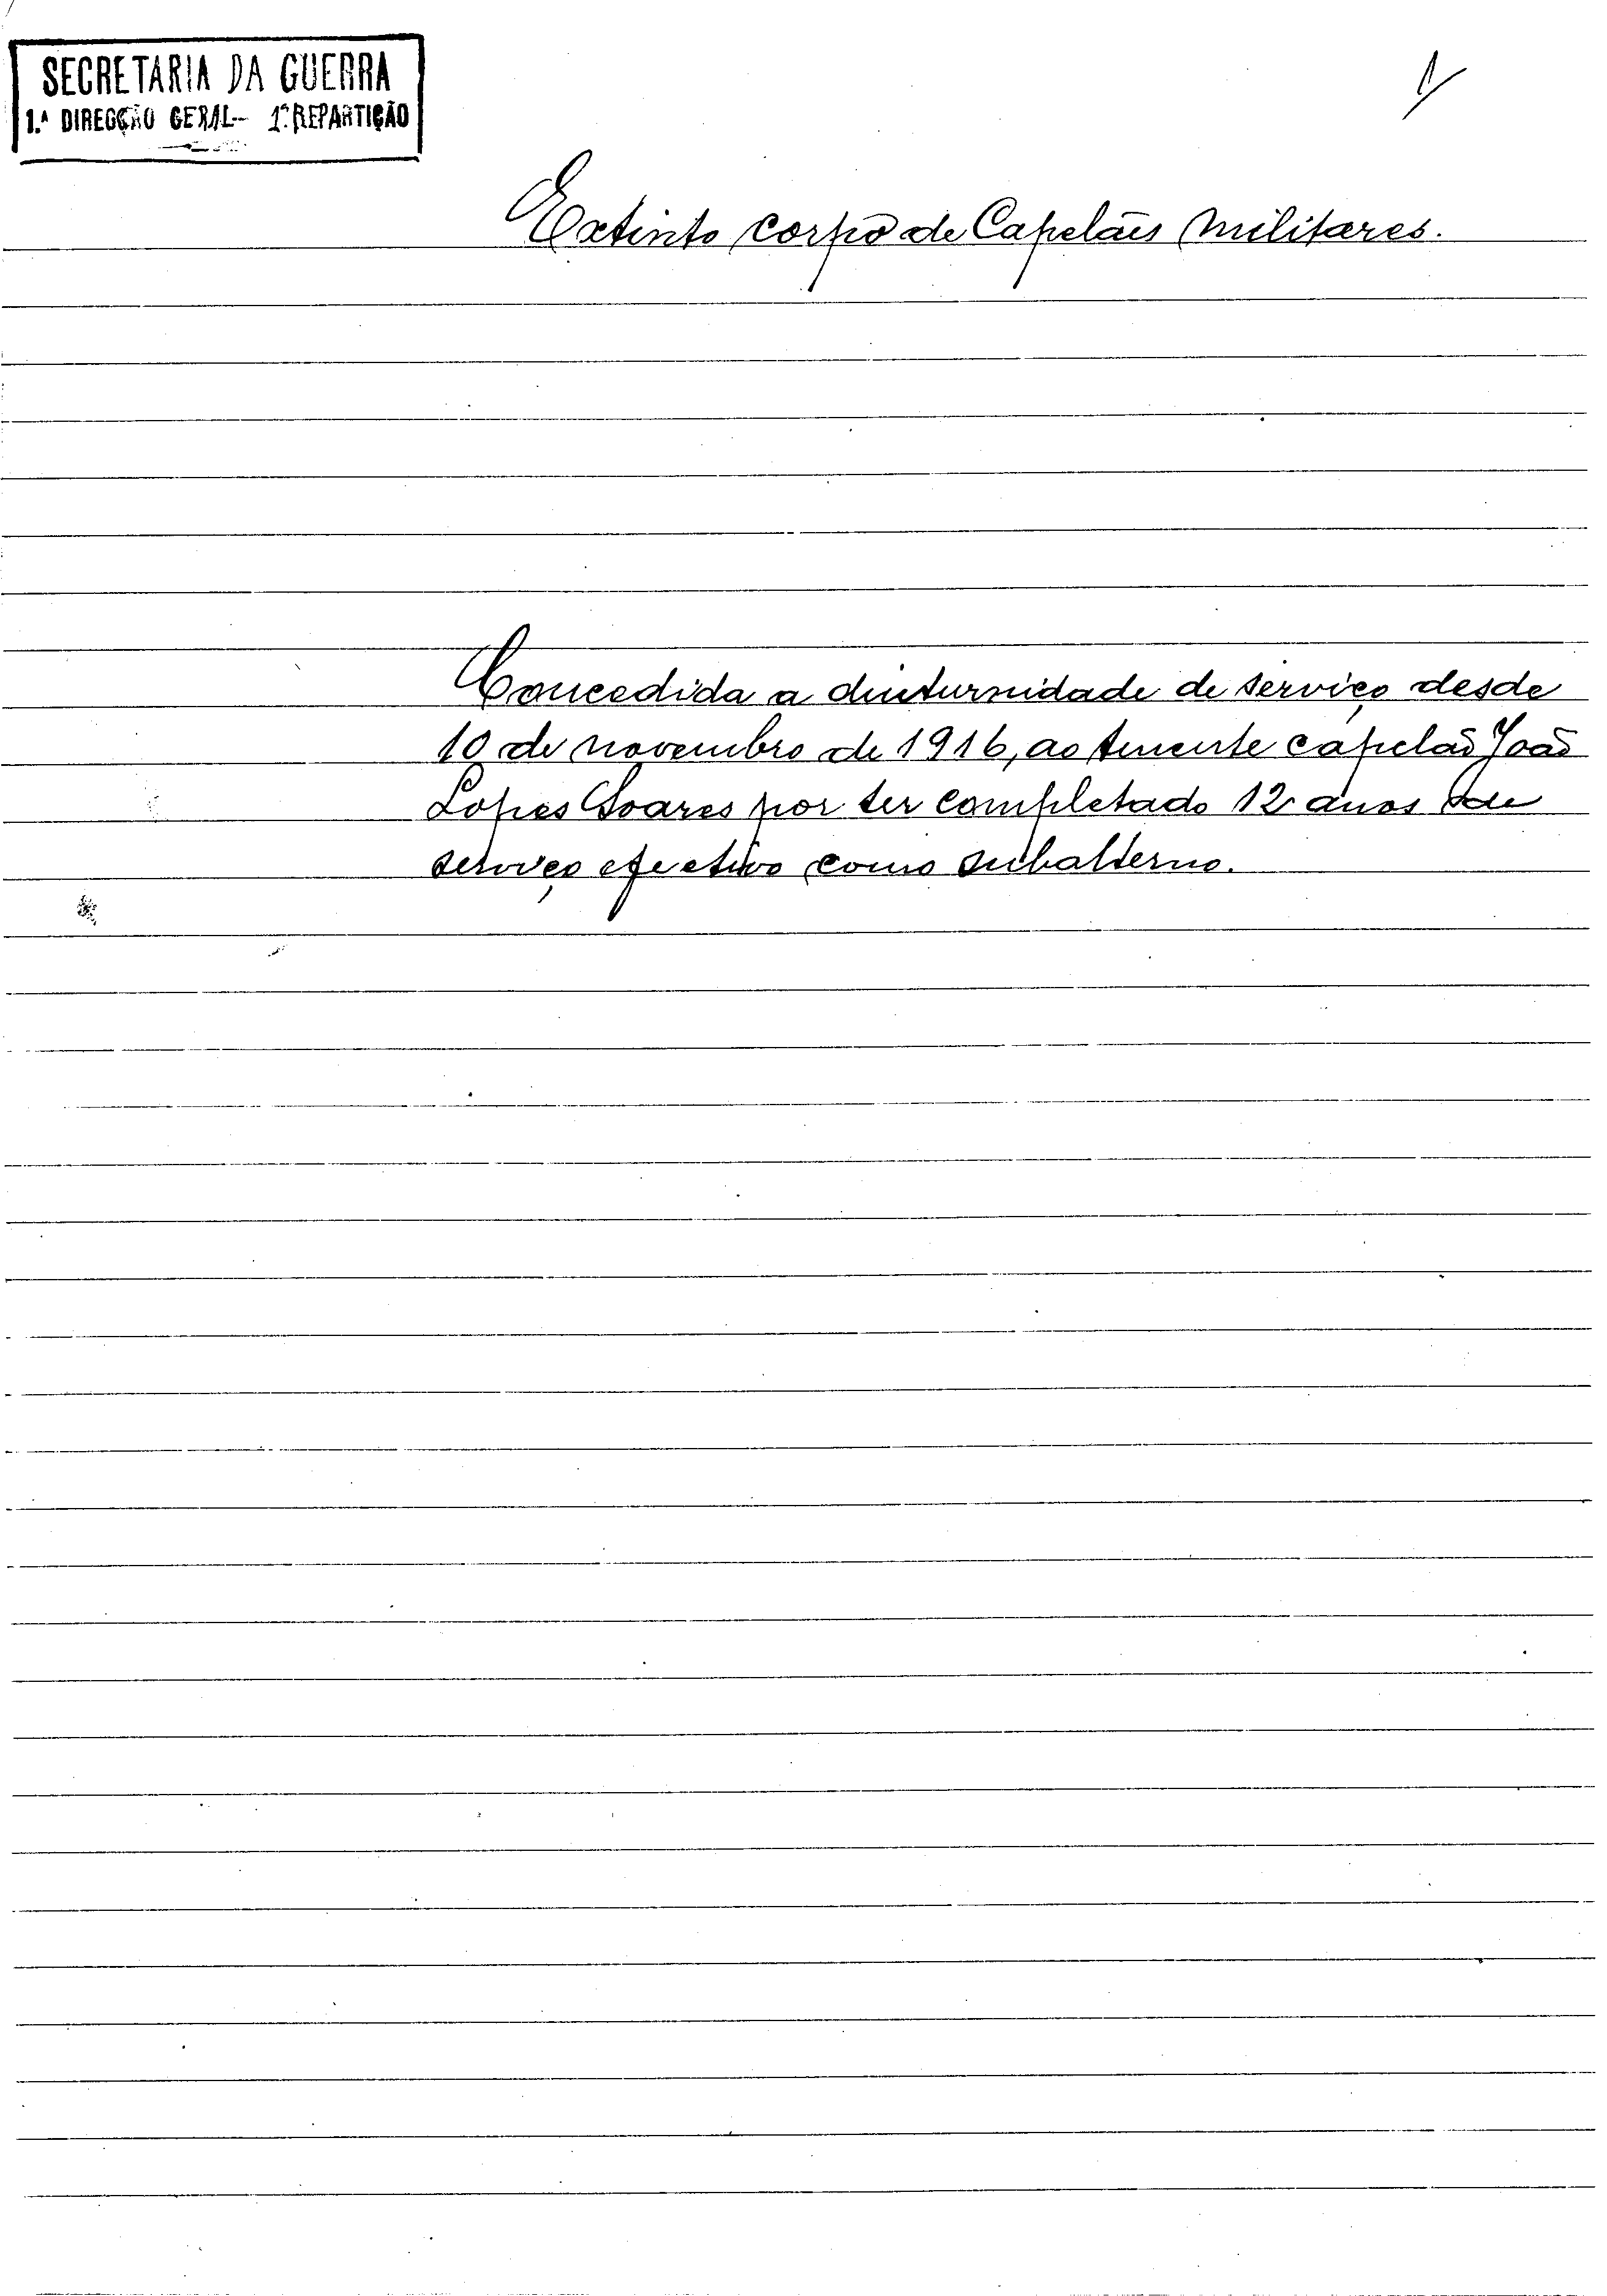 SECRETARIA DA GUERRA
1.ª DIRECÇÃO GERAL - 1.ª REPARTIÇÃO
Extinto corpo de Capelães militares.
Concedida a diuturnidade de serviço desde
10 de novembro de 1916, ao tenente capelão João
Lopes Soares por ter completado 12 anos de
serviço efectivo como subalterno.